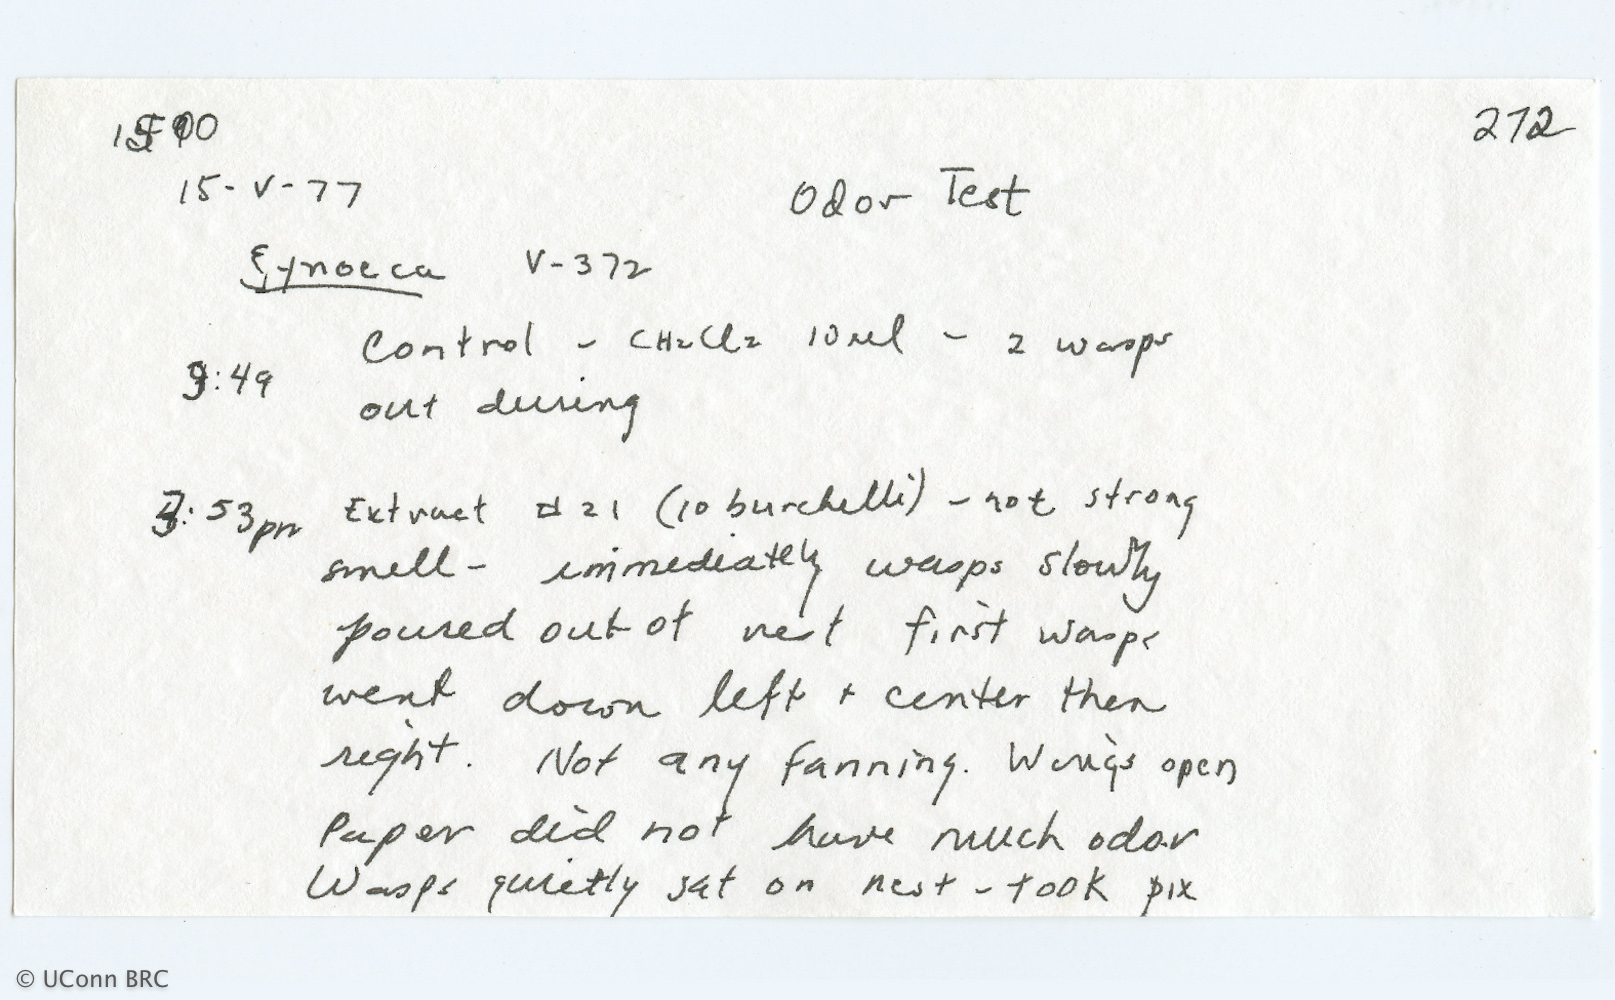 272
15-V-77
Odor Test
Synoeca V-372
Control - CH2Cl2 10 ul - 2 wasps
:49
out during
:53pm Extract # 21 (10 burchelli) - not strong
smell - immediately wasps slowly
poured out of nest first wasps
went down left + center then
right. Not any fanning. Wings open
Paper did not have much odor
Wasps quietly sat on nest - took pix
© UConn BRC